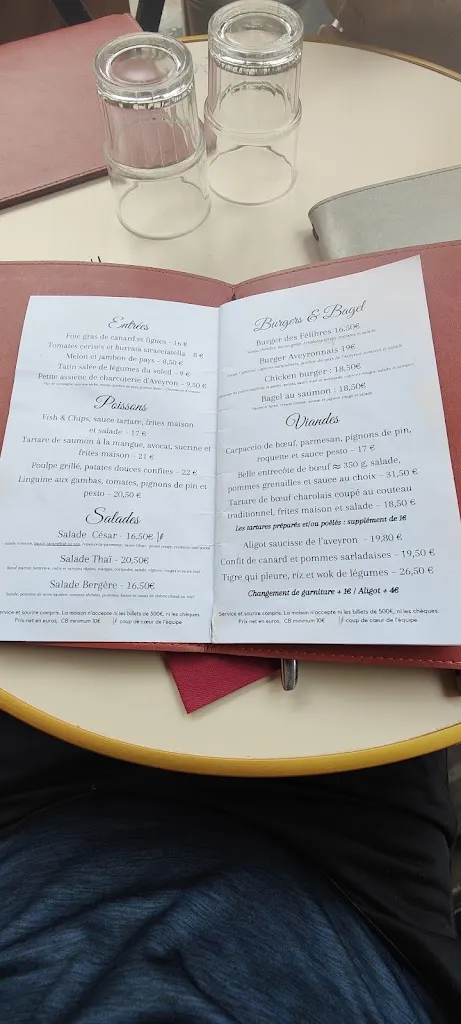 Entrées
Foie gras de canard et figues – 16 €
Tomates cerises et burrata stracciatella 8 €
Melon et jambon de pays – 8,50 €
Tatin salée de légumes du soleil – 9 €
Petite assiette de charcuterie d'Aveyron – 9,50 €
Poissons
Fish & Chips, sauce tartare, frites maison
et salade – 17 €
Tartare de saumon à la mangue, avocat, sucrine et
frites maison – 21 €
Poulpe grillé, patates douces confites – 22 €
Linguine aux gambas, tomates, pignons de pin et
pesto – 20,50 €
Salades
Salade César - 16.50€
Salade Thaï - 20,50€
Salade Bergère - 16.50€
Service et sourire compris. La maison n'accepte ni les billets de 500€, ni les chèques.
Prix net en euros, CB minimum 10€ coup de cœur de l'équipe
Burgers & Bagel
Burger des Félibres 16.50€
Burger Aveyronnais 19€
Chicken burger : 18,50€
Bagel au saumon : 18,50€
Viandes
Carpaccio de bœuf, parmesan, pignons de pin,
roquette et sauce pesto – 17 €
Belle entrecôte de bœuf ≈ 350 g, salade,
pommes grenailles et sauce au choix – 31,50 €
Tartare de bœuf charolais coupé au couteau
traditionnel, frites maison et salade – 18,50 €
Les tartares préparés et/ou poêlés : supplément de 1€
Aligot saucisse de l'aveyron - 19,80 €
Confit de canard et pommes sarladaises – 19,50 €
Tigre qui pleure, riz et wok de légumes – 26,50 €
Changement de garniture + 1€ / Aligot + 4€
Service et sourire compris. La maison n'accepte ni les billets de 500€, ni les chèques.
Prix net en euros, CB minimum 10€ coup de cœur de l'équipe